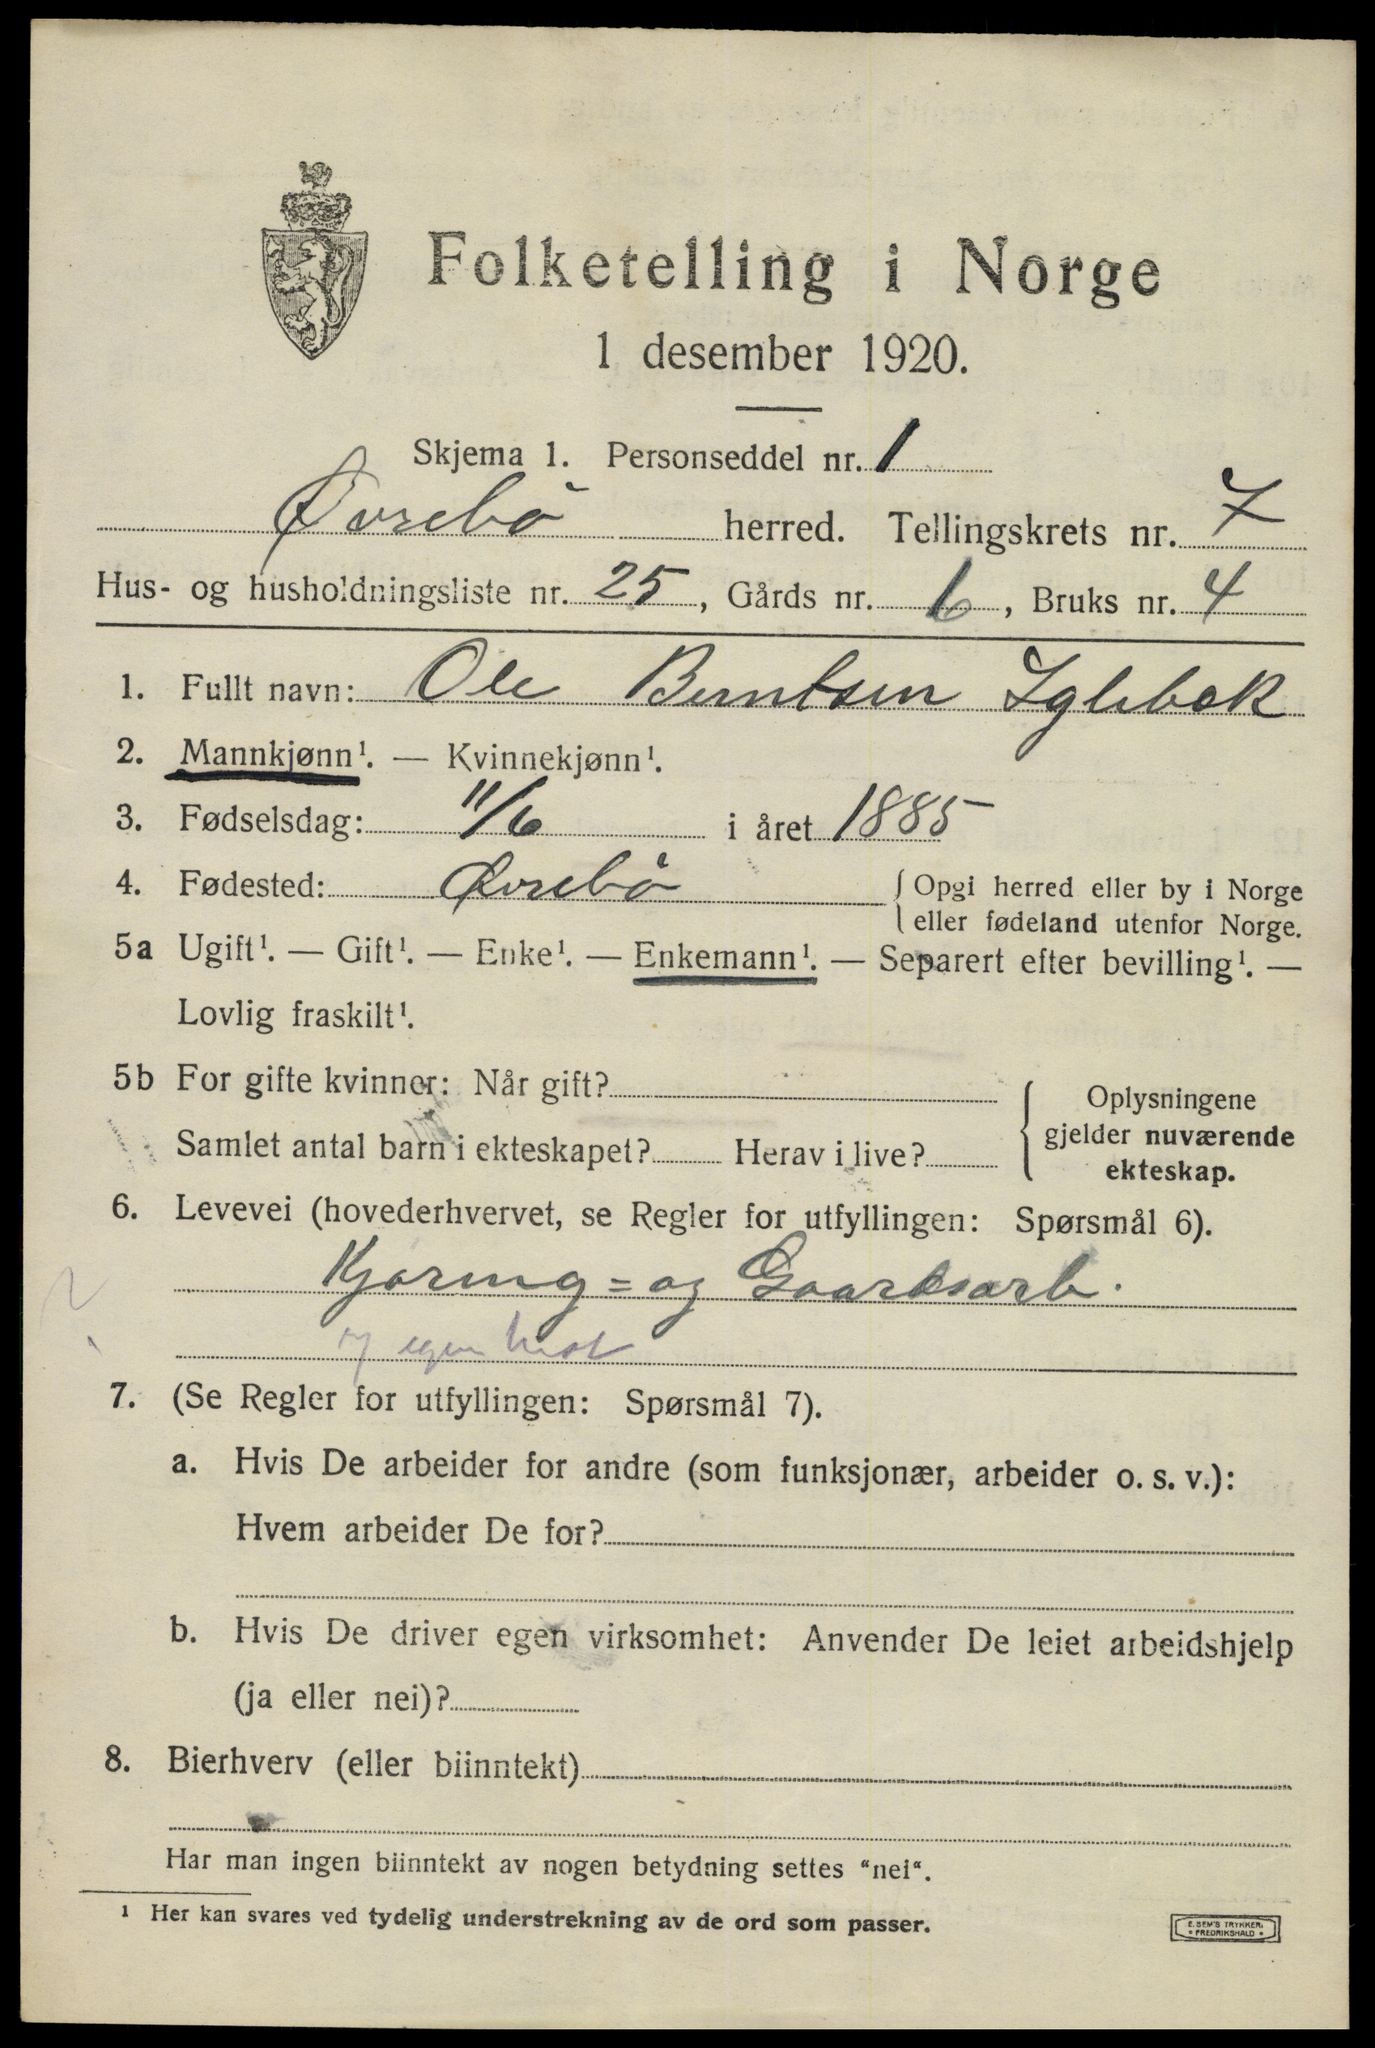 Folketelling i Norge
1 desember 1920.
Skjema 1. Personseddel nr. 1
Øvrebö herred. Tellingskrets nr. 7
Hus- og husholdningsliste nr. 25, Gårds nr. 6, Bruks nr. 4
1. Fullt navn: Ole Berntsen Iglebæk
2. Mannkjønn¹. — Kvinnekjønn¹.
3. Fødselsdag: 11/6 i året 1885
4. Fødested: Øvrebö { Opgi herred eller by i Norge
eller fødeland utenfor Norge.
5a Ugift¹. — Gift¹. — Enke¹. — Enkemann¹. — Separert efter bevilling¹. —
Lovlig fraskilt¹.
5b For gifte kvinner: Når gift?
Samlet antal barn i ekteskapet? Herav i live?
Oplysningene
gjelder nuværende
ekteskap.
6. Levevei (hovederhvervet, se Regler for utfyllingen: Spørsmål 6).
Kjøring= og Gaardsarb.
egen hest
7. (Se Regler for utfyllingen: Spørsmål 7).
a. Hvis De arbeider for andre (som funksjonær, arbeider o. s. v.):
Hvem arbeider De for?
b. Hvis De driver egen virksomhet: Anvender De leiet arbeidshjelp
(ja eller nei)?
8. Bierhverv (eller biinntekt)
Har man ingen biinntekt av nogen betydning settes "nei".
1 Her kan svares ved tydelig understrekning av de ord som passer.
E. SEM'S TRYKKERI
* FREDRIKSHALD *